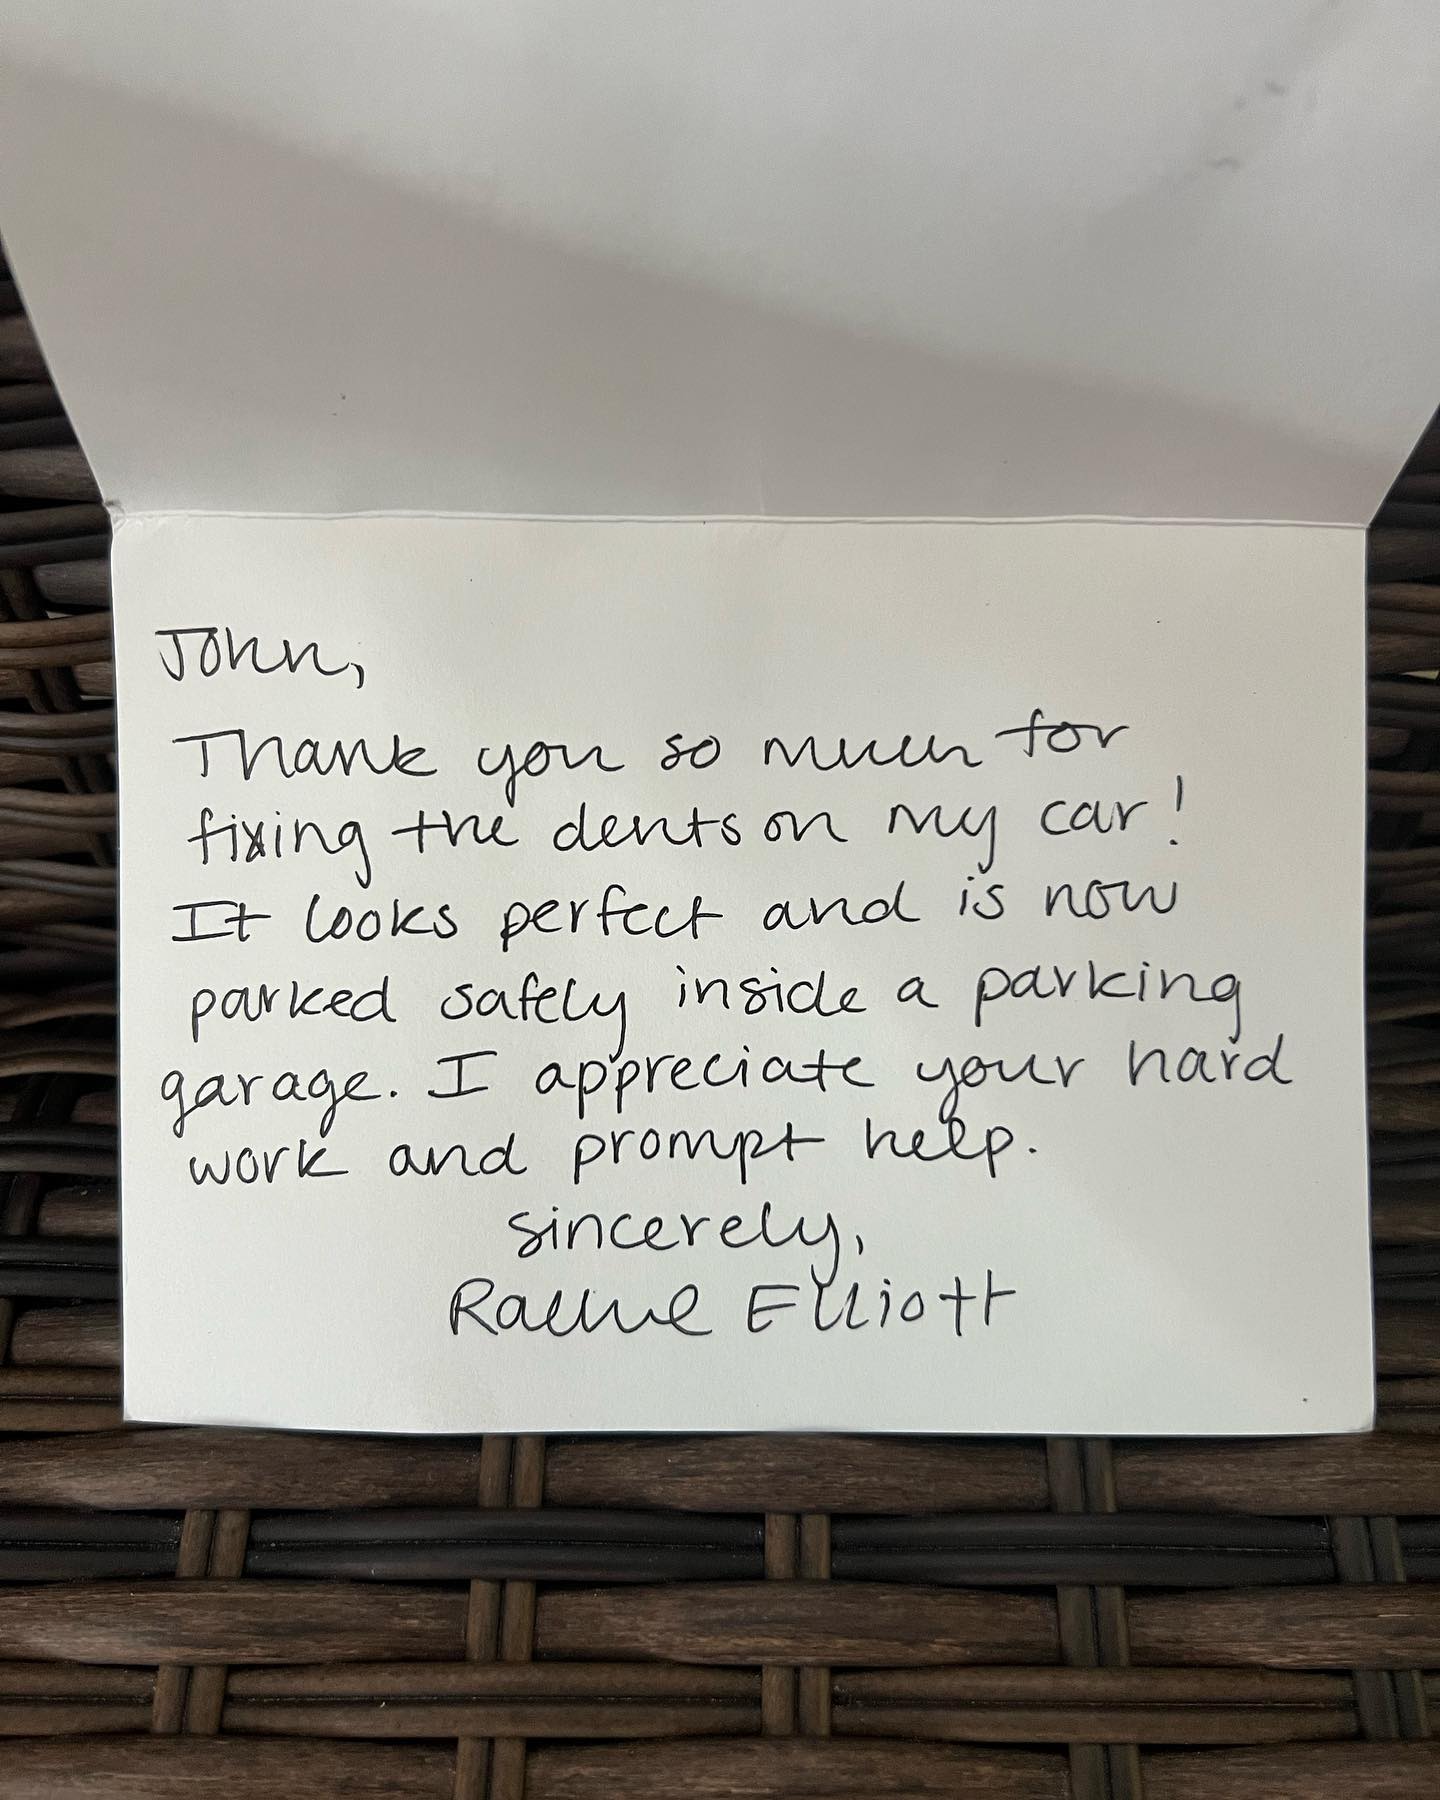 John,
Thank you so much for
fixing the dents on my car!
It looks perfect and is now
parked safely inside a parking
garage. I appreciate your hard
work and prompt help.
sincerely,
Rachel Elliott